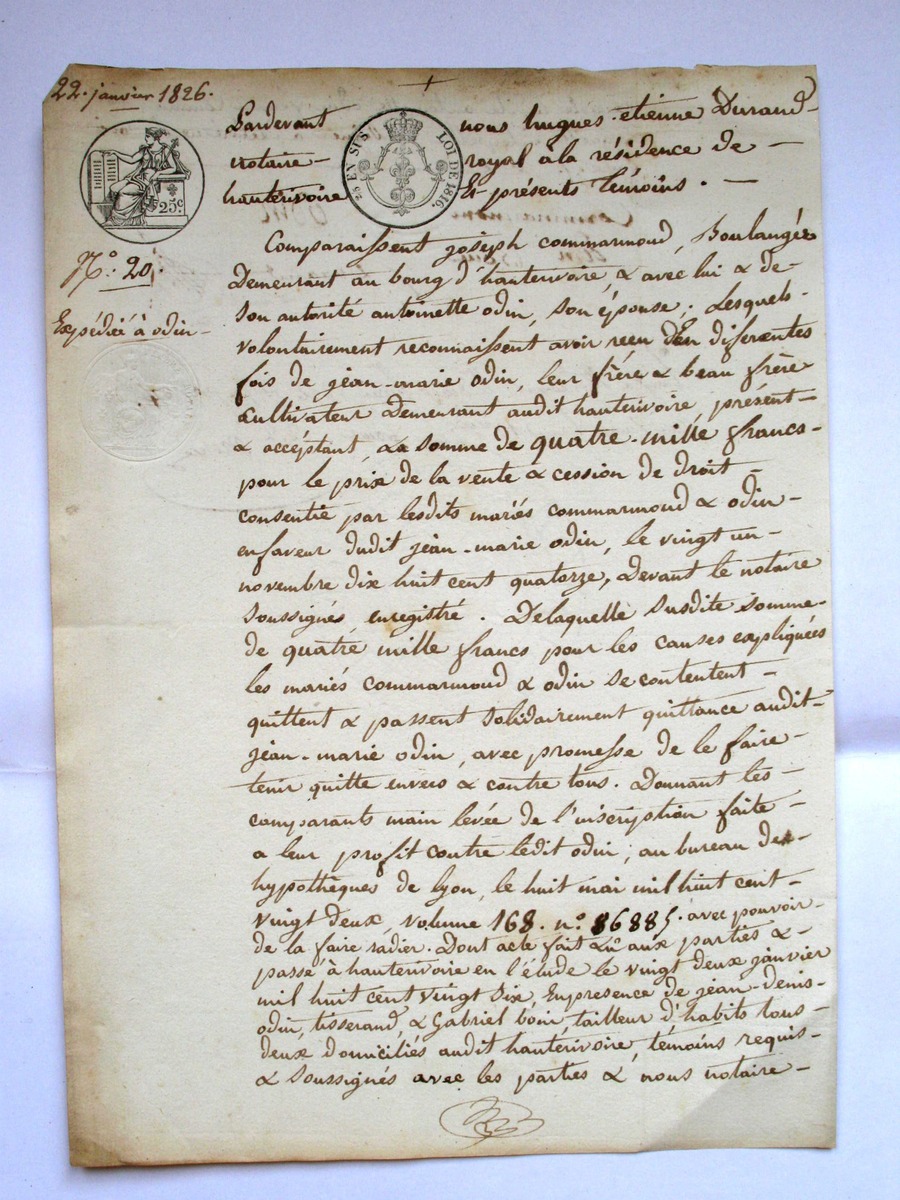 22. janvier 1826.
Pardevant nous hugues-etienne Durand
notaire royal à la résidence de
hauterivoire Et présents témoins.
25 EN SUS
LOI DE 1816.
25c.
N.o 20.
Expédié à odin
Comparaissent joseph commarmond, Boulanger
Demeurant au bourg d'hauterivoire, & avec lui & de
son autorité antoinette odin, son épouse; Lesquels
volontairement reconnaissent avoir reçu Den differentes
fois de jean-marie odin, leur frère & beau frère
cultivateur Demeurant audit hauterivoire, présent
& accéptant, La somme de quatre-mille francs
pour le prix de la vente & cession de droit
consentie par lesdits mariés commarmond & odin
en faveur dudit jean-marie odin, le vingt un
novembre dix huit cent quatorze, Devant le notaire
soussigné, enregistré. De laquelle susdite somme
de quatre mille francs pour les causes expliquées
les mariés commarmond & odin se contentent
quittent & passent solidairement quittance audit
jean-marie odin, avec promesse de le faire
tenir quitte envers & contre tous. Donnant les
comparants main levée de l'inscription faite
a leur profit contre ledit odin, au bureau des
hypothèques de lyon, le huit mai mil huit cent
vingt deux, volume 168. n.o 86885. avec pouvoir
de la faire radier. Dont acte fait & lu aux parties &
passé à hauterivoire en l'étude le vingt deux janvier
mil huit cent vingt six, En presence de jean-denis
odin, tisserand, & Gabriel boin, tailleur d'habits tous
deux domiciliés audit hauterivoire, témoins requis
& soussignés avec les parties & nous notaire